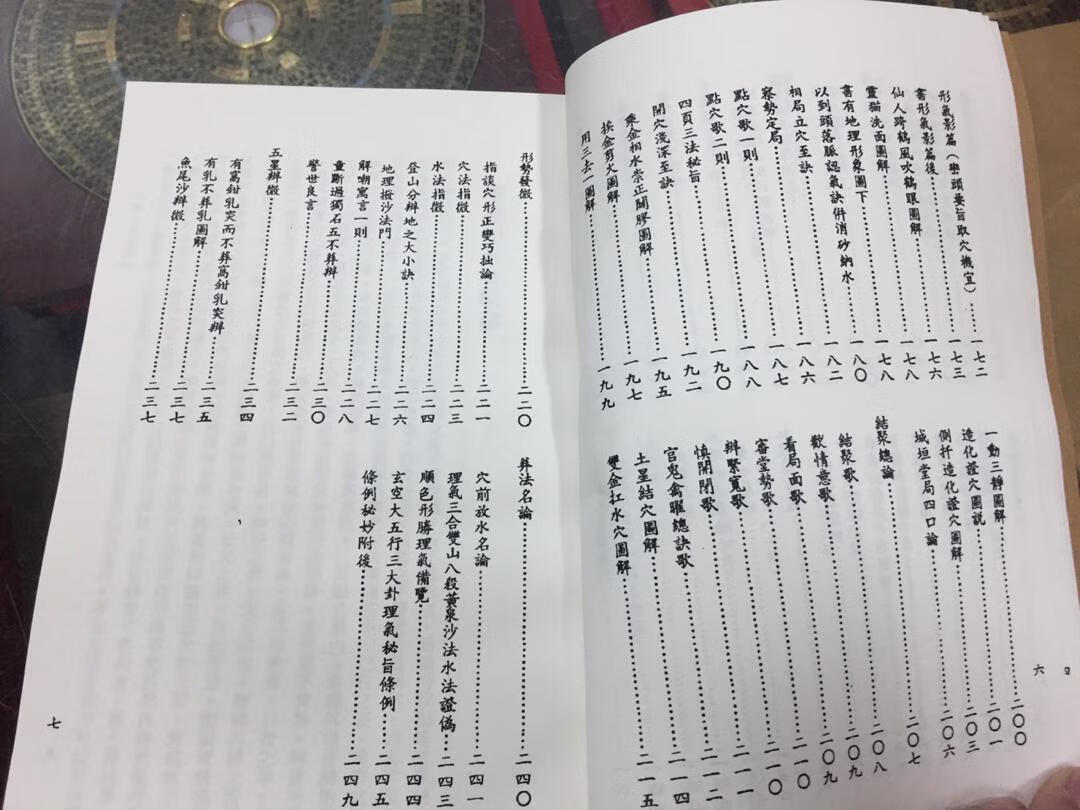 形氣影篇（巒頭要旨取穴機宜）…一七二
書形氣影篇後……一七三
仙人跨鶴風吹鶴眼圖解……一七六
靈猫洗面圖解……一七八
書有地理形象圖下……一七八
以到頭落脈認氣訣併消砂納水……一八〇
相局立穴至訣……一八二
察勢定局……一八六
點穴歌一則……一八七
點穴歌二則……一八八
四頁三法秘旨……一九〇
開穴淺深至訣……一九二
乘金相水崇正闢膠圖解……一九五
挨金剪火圖解……一九七
用三去一圖解……一九九
一動三靜圖解……二〇〇
造化證穴圖說……二〇一
側扦造化證穴圖解……二〇三
城垣堂局四口論……二〇六
結聚總論……二〇七
結聚歌……二〇八
歡情意歌……二〇九
看局面歌……二〇九
審堂勢歌……二一〇
辯緊寬歌……二一〇
慎開閉歌……二一一
官鬼禽曜總訣歌……二一二
土星結穴圖解……二一四
雙金扛水穴圖解……二一五
六
形勢發微……二二〇
指談穴形正變巧拙論……二二一
穴法指微……二二三
水法指微……二二四
登山分辯地之大小訣……二二六
地理撥沙法門……二二七
解嘲寓言一則……二二八
童斷過獨石五不葬辯……二三〇
警世良言……二三二
五星辯微……二三四
有窩鉗乳突而不葬窩鉗乳突辯……二三五
有乳不葬乳圖解……二三七
魚尾沙辯微……二三七
葬法名論……二四〇
穴前放水名論……二四一
理氣三合雙山八殺黃泉沙法水法證偽……二四三
順色形勝理氣備覽……二四四
玄空大五行三大卦理氣秘旨條例……二四五
條例秘妙附後……二四九
七